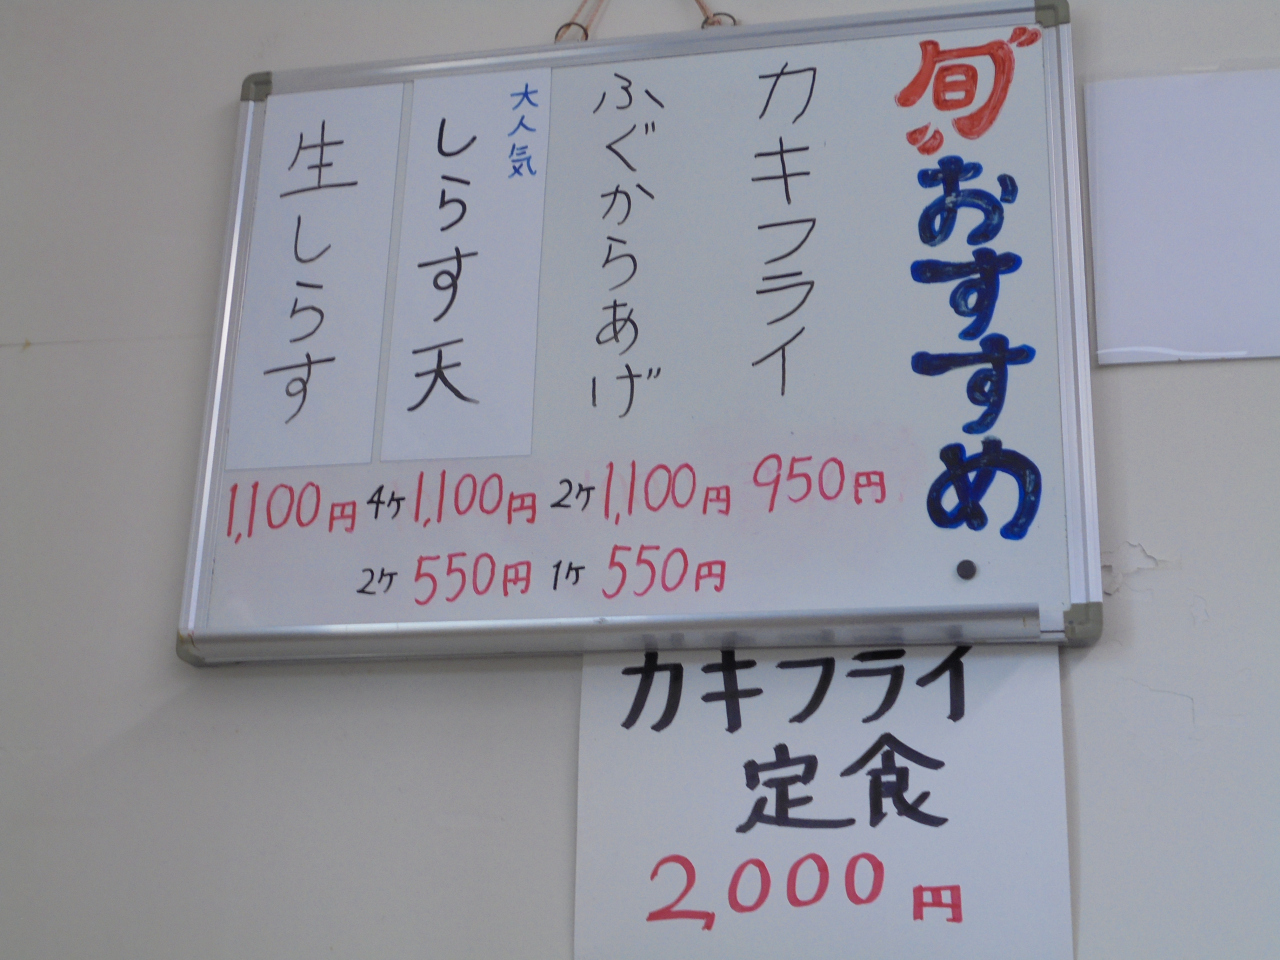 旬おすすめ
カキフライ
950円
ふぐからあげ
2ケ1,100円
1ケ550円
大人気
しらす天
4ケ1,100円
2ケ550円
生しらす
1,100円
カキフライ
定食
2,000円